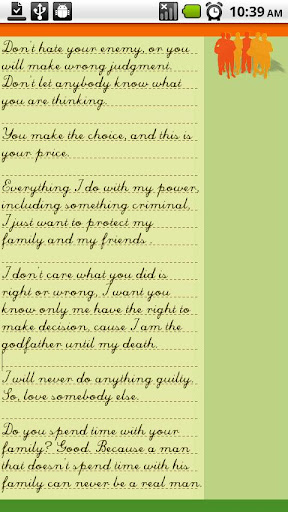 10:39 AM
Don't hate your enemy, or you
will make wrong judgment.
Don't let anybody know what
you are thinking.
You make the choice, and this is
your price.
Everything I do with my power,
including something criminal,
I just want to protect my
family and my friends .
I don't care what you did is
right or wrong, I want you
know only me have the right to
make decision, cause I am the
godfather until my death.
I will never do anything guilty,
So, love somebody else.
Do you spend time with your
family? Good. Because a man
that doesn't spend time with his
family can never be a real man.